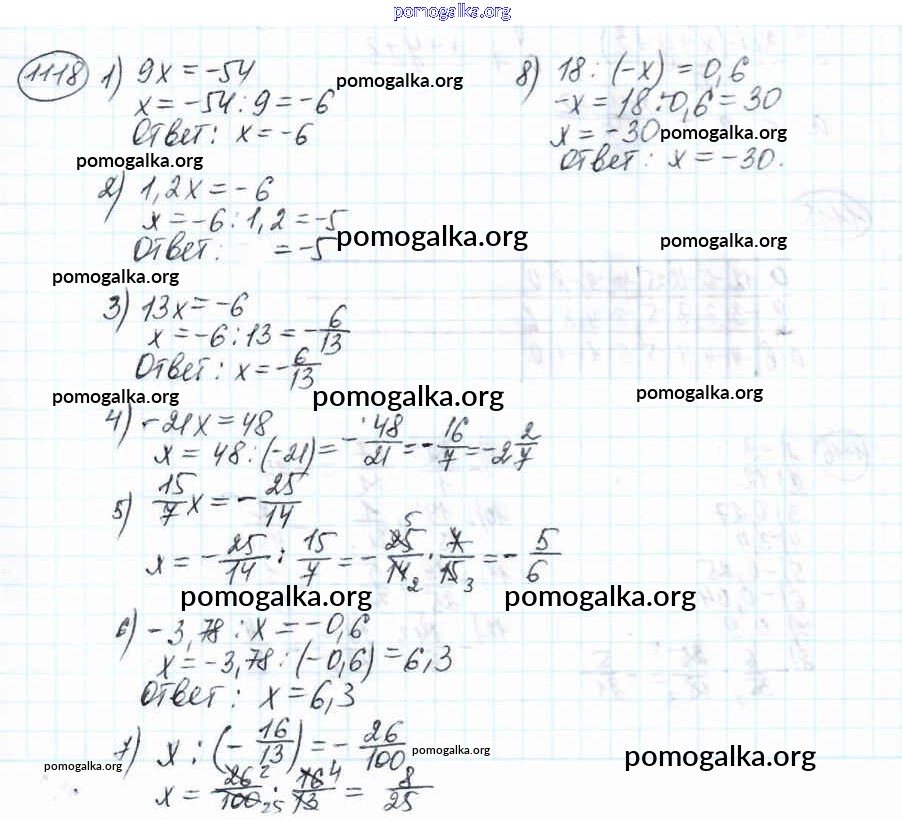 pomogalka.org
1118 1) 9x = -54
x = -54 : 9 = -6
Ответ: x = -6
pomogalka.org
pomogalka.org
8) 18 : (-x) = 0,6
-x = 18 : 0,6 = 30
x = -30
pomogalka.org
Ответ: x = -30.
2) 1,2x = -6
x = -6 : 1,2 = -5
Ответ: = -5
pomogalka.org
pomogalka.org
pomogalka.org
3) 13x = -6
x = -6 : 13 = -6/13
Ответ: x = -6/13
pomogalka.org
pomogalka.org
pomogalka.org
4) -21x = 48
x = 48 : (-21) = -48/21 = -16/7 = -2 2/7
5) 15/7 x = -25/14
x = -25/14 : 15/7 = -25/14 · 7/15 = -5/6
pomogalka.org
pomogalka.org
6) -3,78 : x = -0,6
x = -3,78 : (-0,6) = 6,3
Ответ: x = 6,3
7) x : (-16/13) = -26/100
pomogalka.org
pomogalka.org
pomogalka.org
x = 26/100 · 16/13 = 8/25